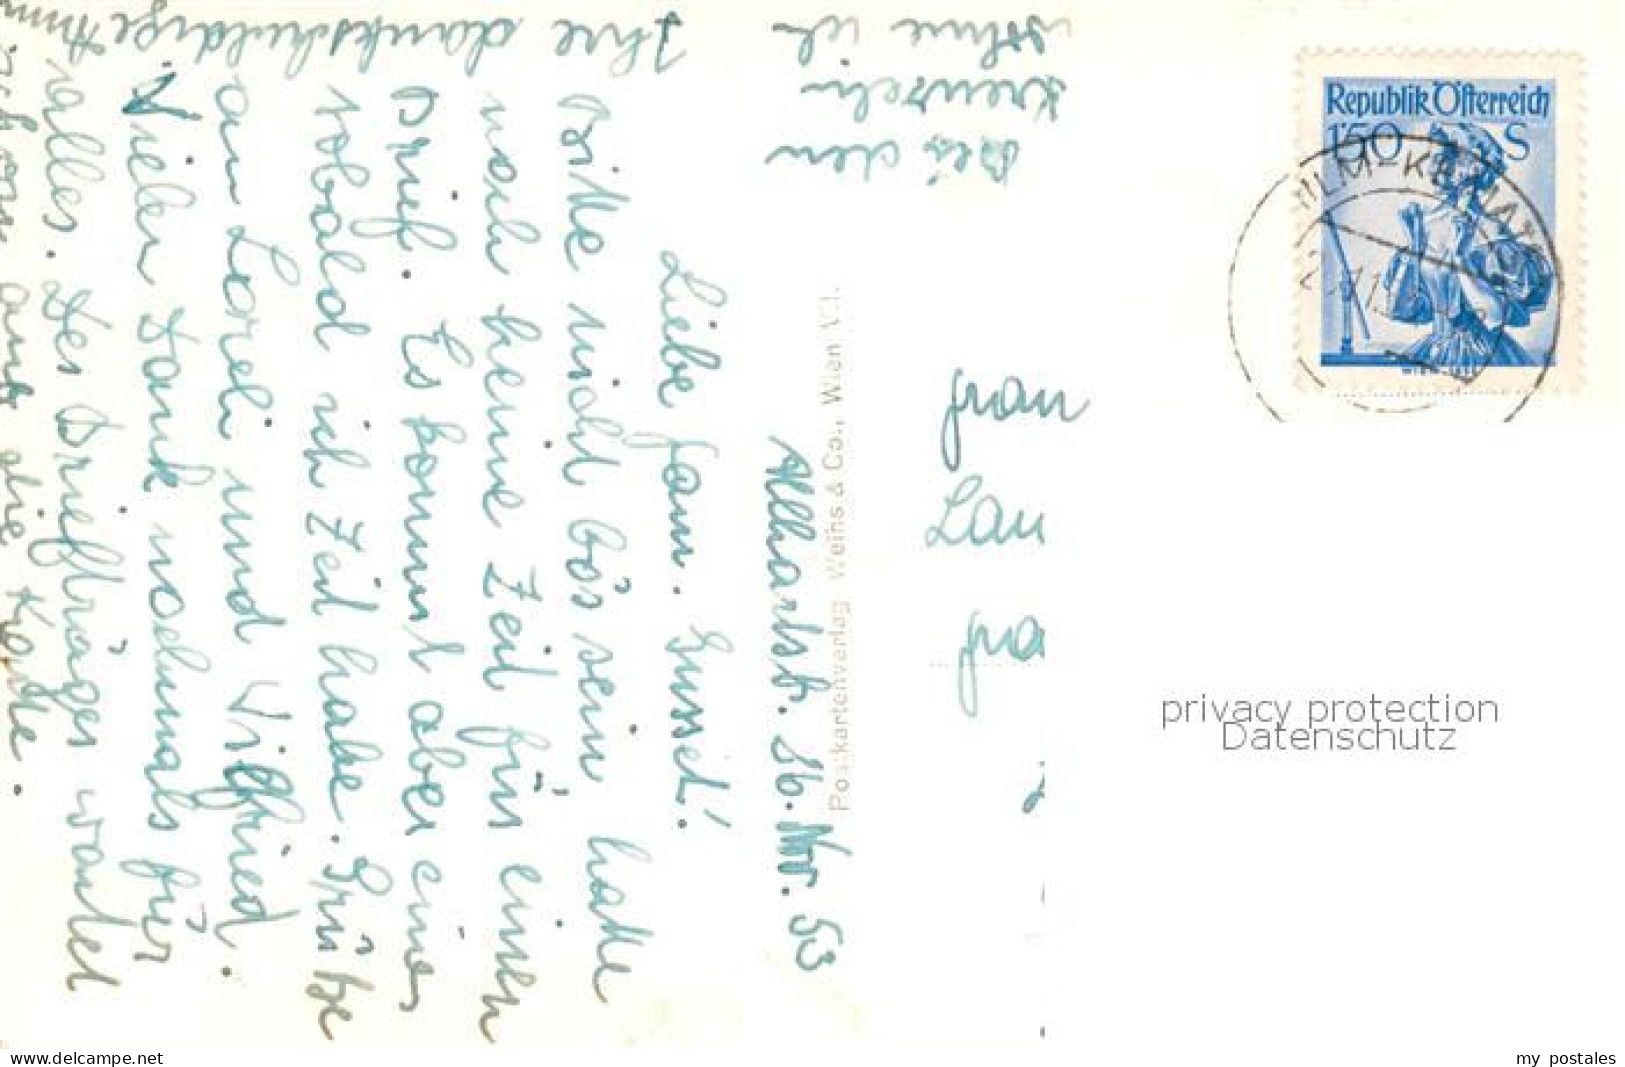 Allhartsb. 26. Nov. 53
Liebe Fam. Gusset!
Bitte nicht bös sein, hatte
noch keine Zeit für einen
Brief. Es kommt aber einer
sobald ich Zeit habe. Grüße
an Loreli und Wilfried.
Vielen Dank nochmals für
alles. Der Briefträger wartet
schon auf die Karte.
Ihre dankschuldige
Bei den
Kreuzeln
wohne ich
Frau
Lau
Postkartenverlag Weihs & Co., Wien VII.
Republik Österreich
1'50 S
privacy protection
Datenschutz
www.delcampe.net
my postales